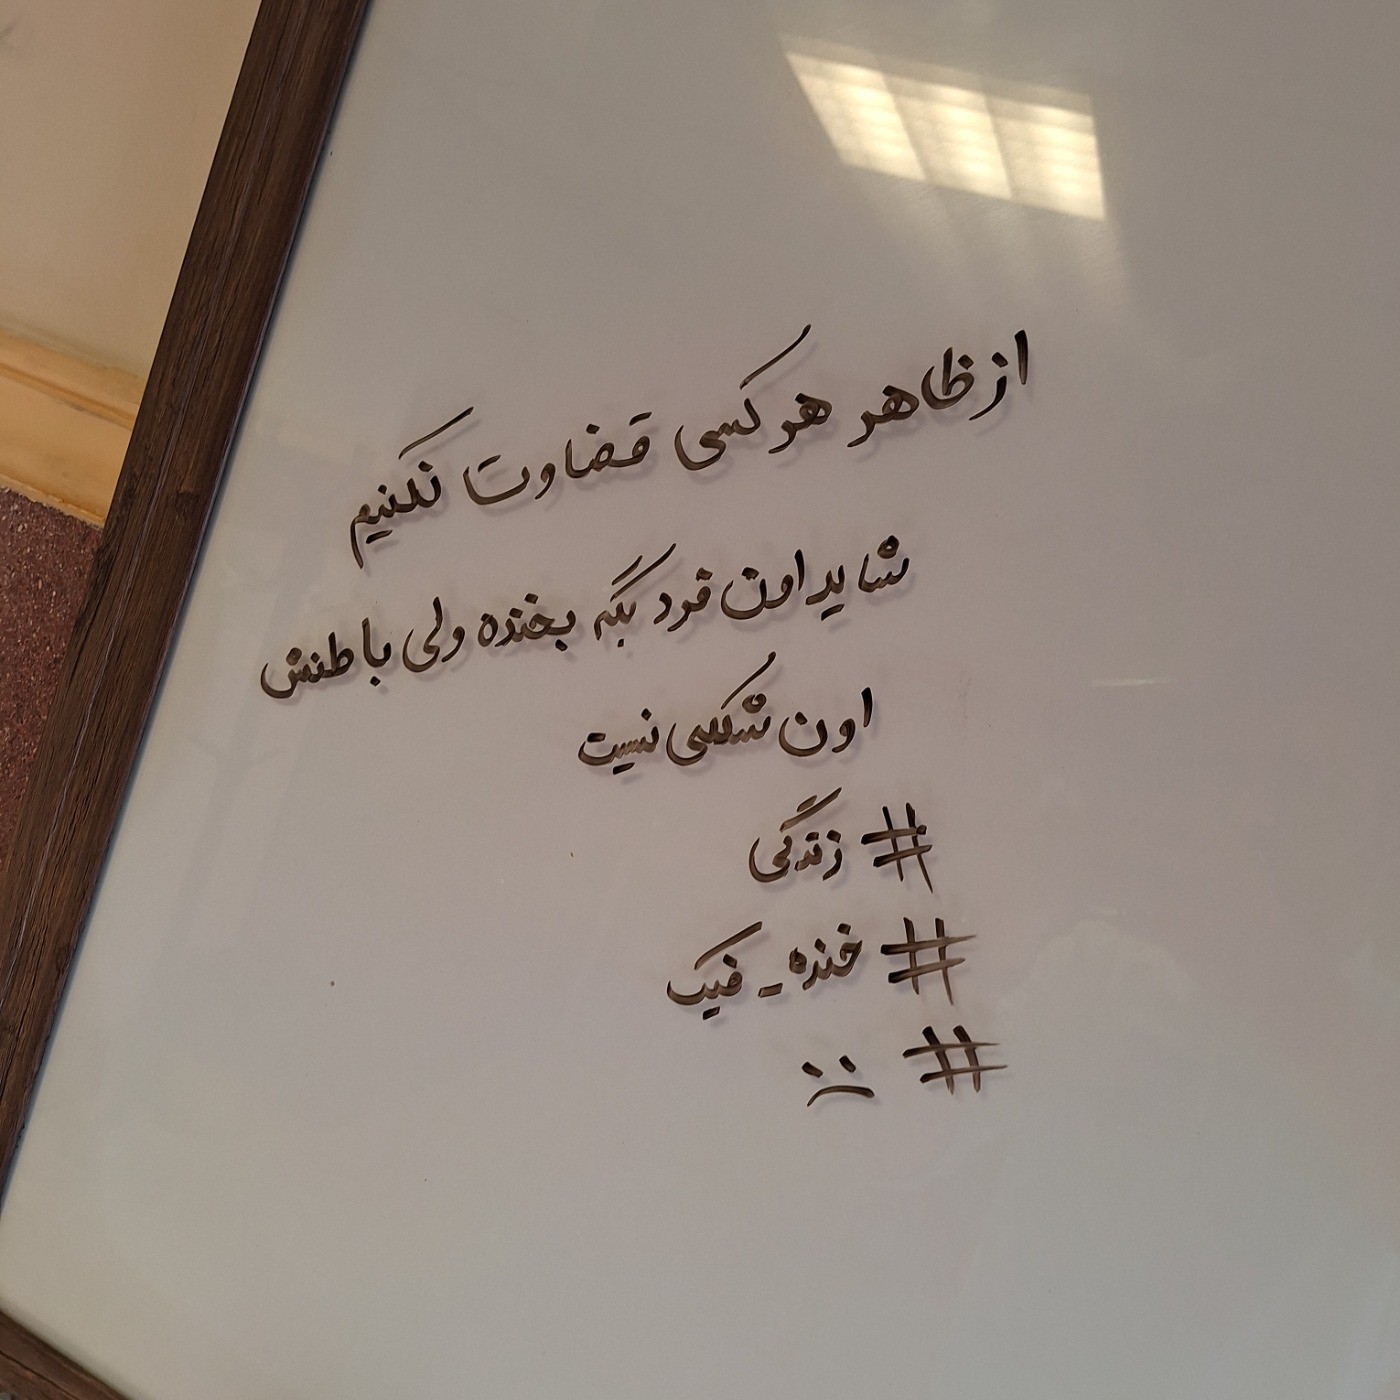 از ظاهر هر کسی قضاوت نکنیم
شاید اون فرد بگه بخنده ولی باطنش
اون شکلی نیست
# زندگی
# خنده_فیک
# :(